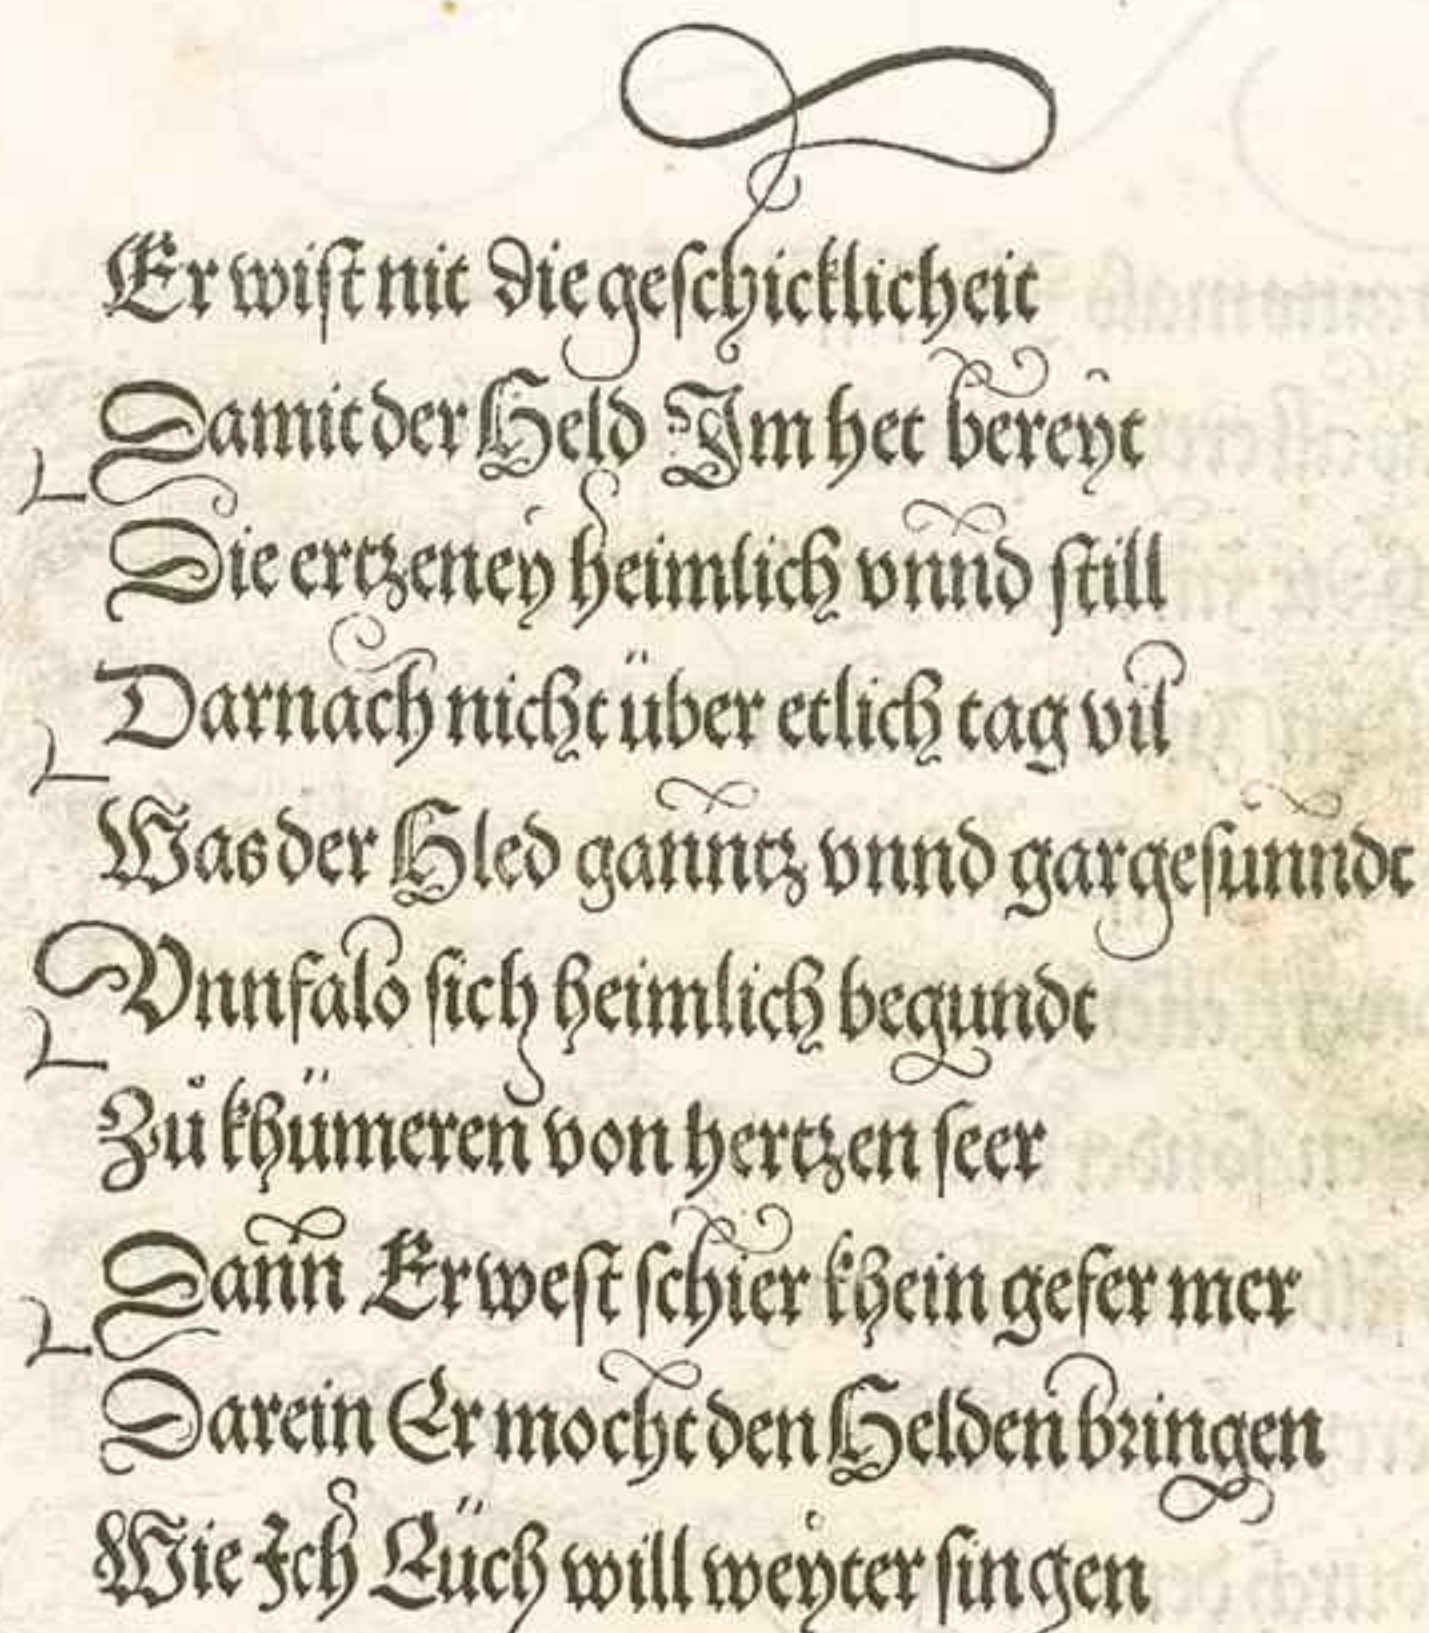 Er wiſt nit die geſchicklicheit
Damit der Held Im het bereyt
Die ertzeney heimlich vnnd ſtill
Darnach nicht über etlich tag vil
Was der Hled ganntz vnnd gar geſunndt
Vnnfalo ſich heimlich begundt
Zů khümeren von hertzen ſeer
Dann Er weſt ſchier khein gefer mer
Darein Er mocht den Helden bringen
Wie Ich Eüch will weyter ſingen